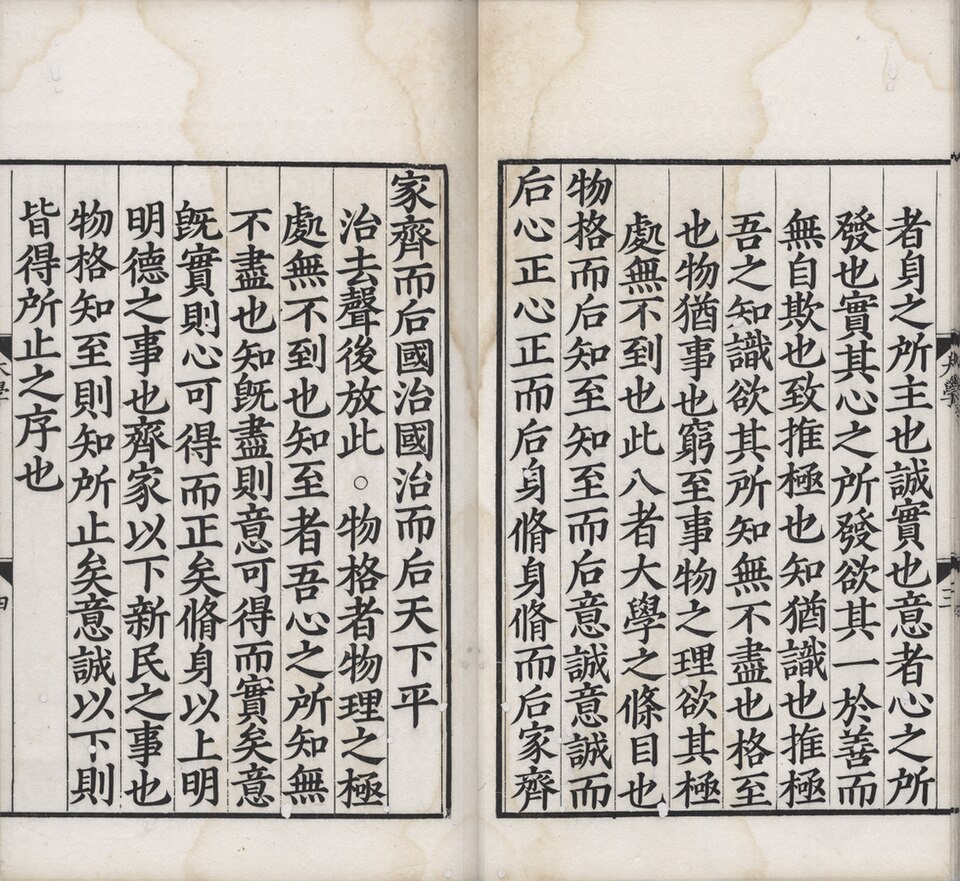 者身之所主也誠實也意者心之所
發也實其心之所發欲其一於善而
無自欺也致推極也知猶識也推極
吾之知識欲其所知無不盡也格至
也物猶事也窮至事物之理欲其極
處無不到也此八者大學之條目也
物格而后知至知至而后意誠意誠而
后心正心正而后身脩身脩而后家齊
家齊而后國治國治而后天下平
治去聲後放此○物格者物理之極
處無不到也知至者吾心之所知無
不盡也知旣盡則意可得而實矣意
旣實則心可得而正矣脩身以上明
明德之事也齊家以下新民之事也
物格知至則知所止矣意誠以下則
皆得所止之序也